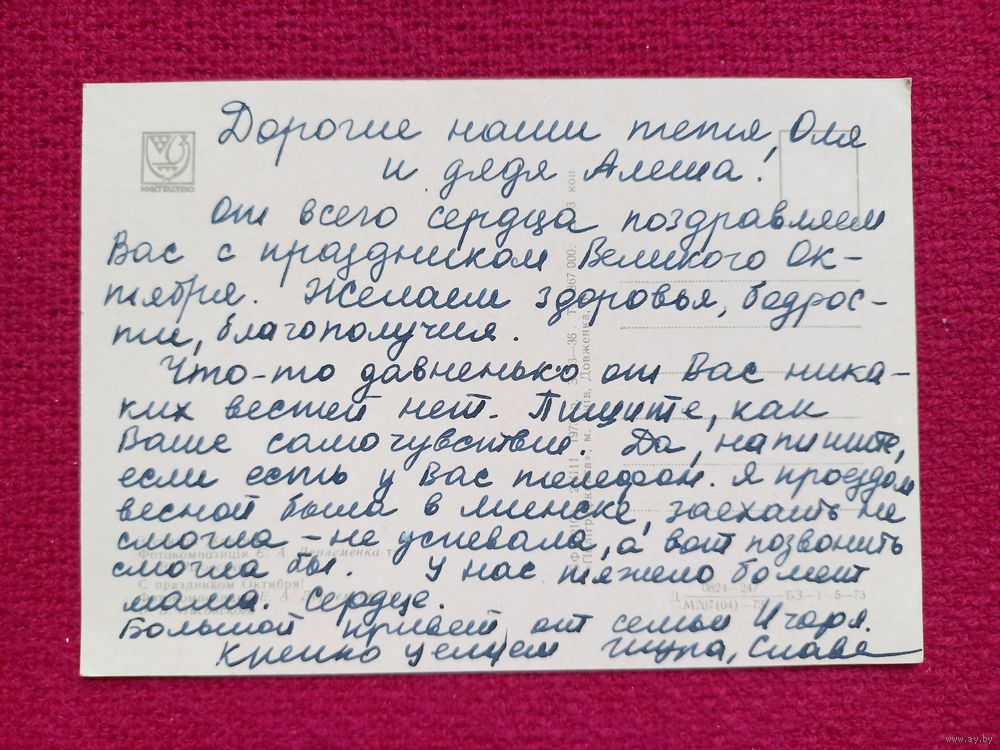 Дорогие наши тетя Оля
и дядя Алеша!
От всего сердца поздравляем
Вас с праздником Великого Ок-
тября. Желаем здоровья, бодрос-
ти, благополучия.
Что-то давненько от Вас ника-
ких вестей нет. Пишите, как
Ваше самочувствие. Да, напишите,
если есть у Вас телефон. Я проездом
весной была в Минске, заехать не
смогла - не успевала, а вот позвонить
смогла бы. У нас тяжело болеет
мама. Сердце.
Большой привет от семьи Игоря.
Крепко целуем Слава
МИСТЕЦТВО
Фотокомпозиція Е. А.
С праздником Октября!
0824-247
Д БЗ-1-5-73
М207(04)-73
коп
67 000.
Довженка,
www.ay.by